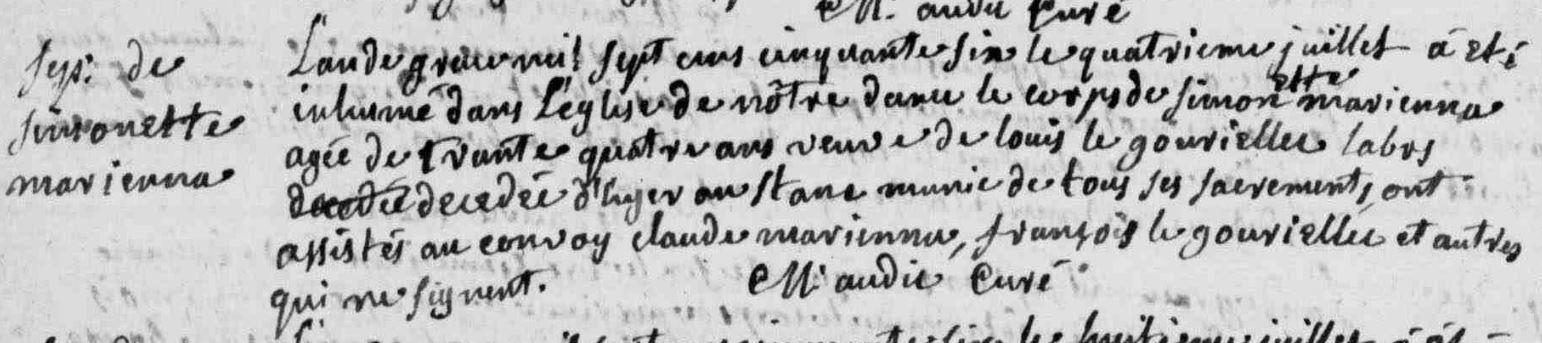 M. audic Curé
Sep: de
simonette
marienna
L'an de grace mil sept cens cinquante six le quatrieme juillet à eté
inhumé dans L'eglise de nôtre dame le corps de simonette marienna
agée de trante quatre ans veuve de louis le gourielleс labrs
decedée decedée d'hyer au stanc munie de tous ses sacrements, ont
assistés au convoy claude marienna, françois le gouriellec et autres
qui ne signent. M: audic Curé
six le huitieme juillet à été